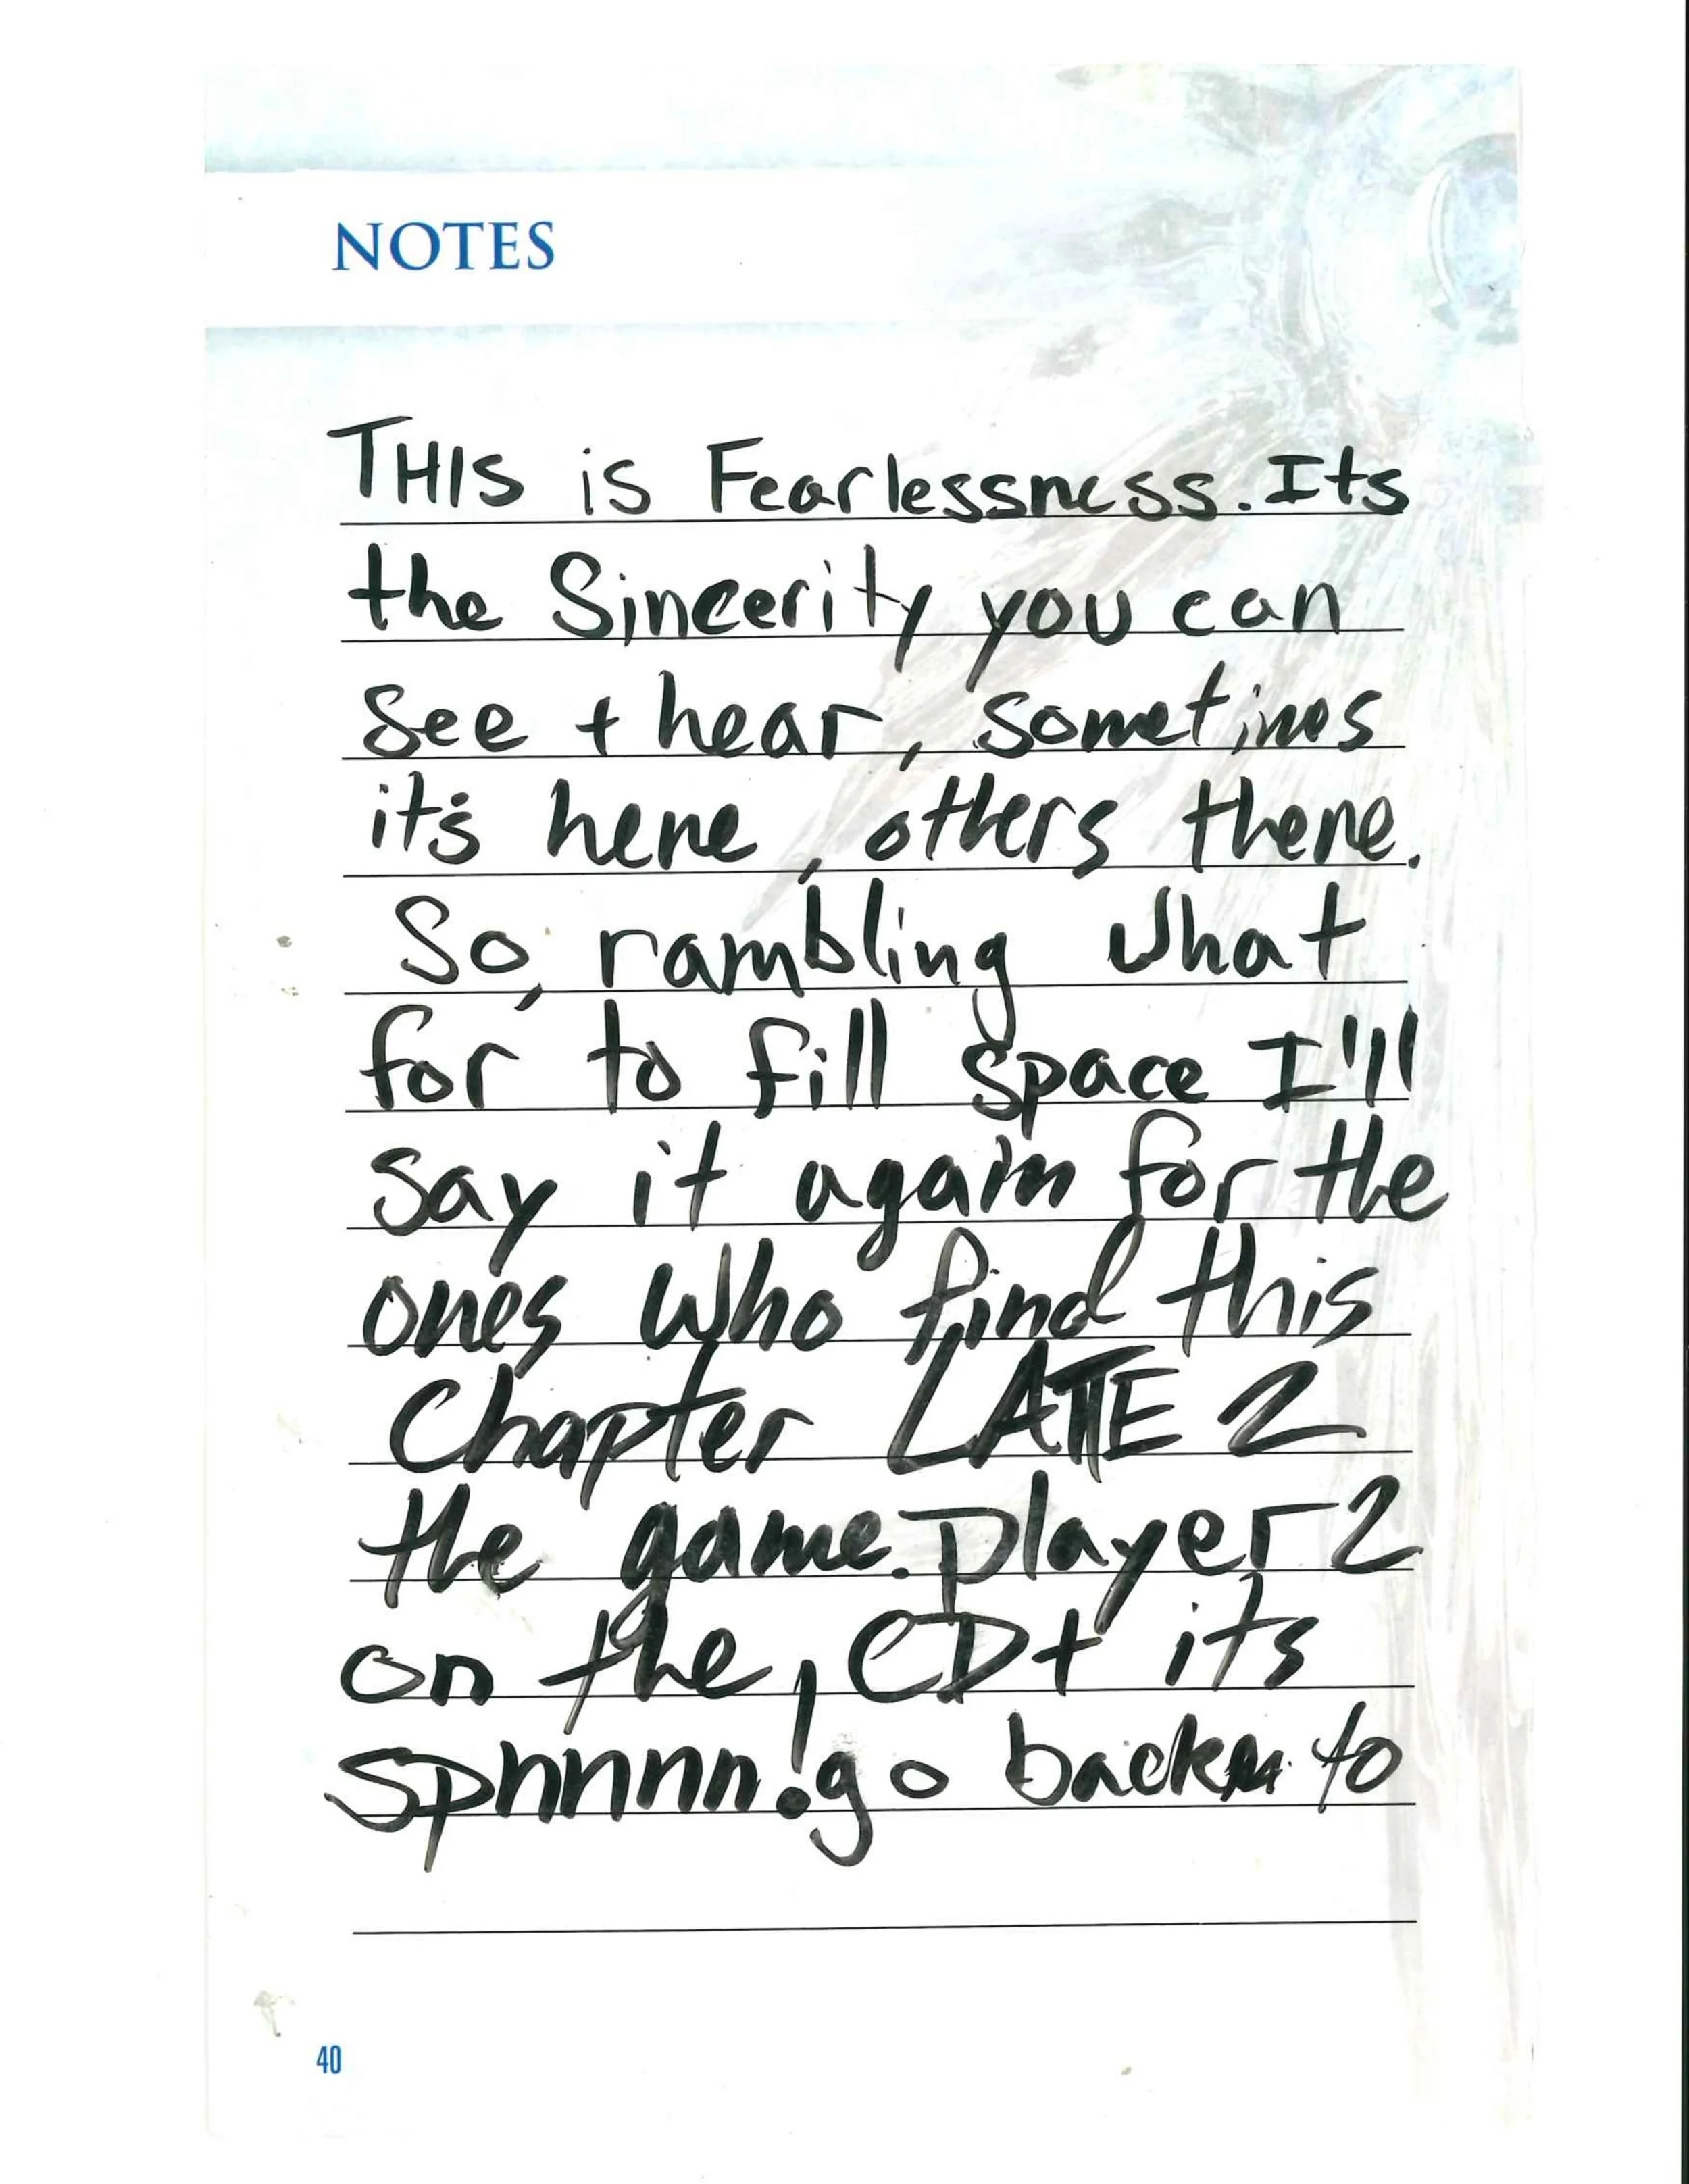 NOTES
THIS is Fearlessness. Its
the Sincerity you can
see + hear, sometimes
it's here, others there.
So, rambling what
for to fill space I'll
say it again for the
ones who find this
Chapter LATE 2
the game. player 2
on the, CD + its
spnnnnn! go back to
40